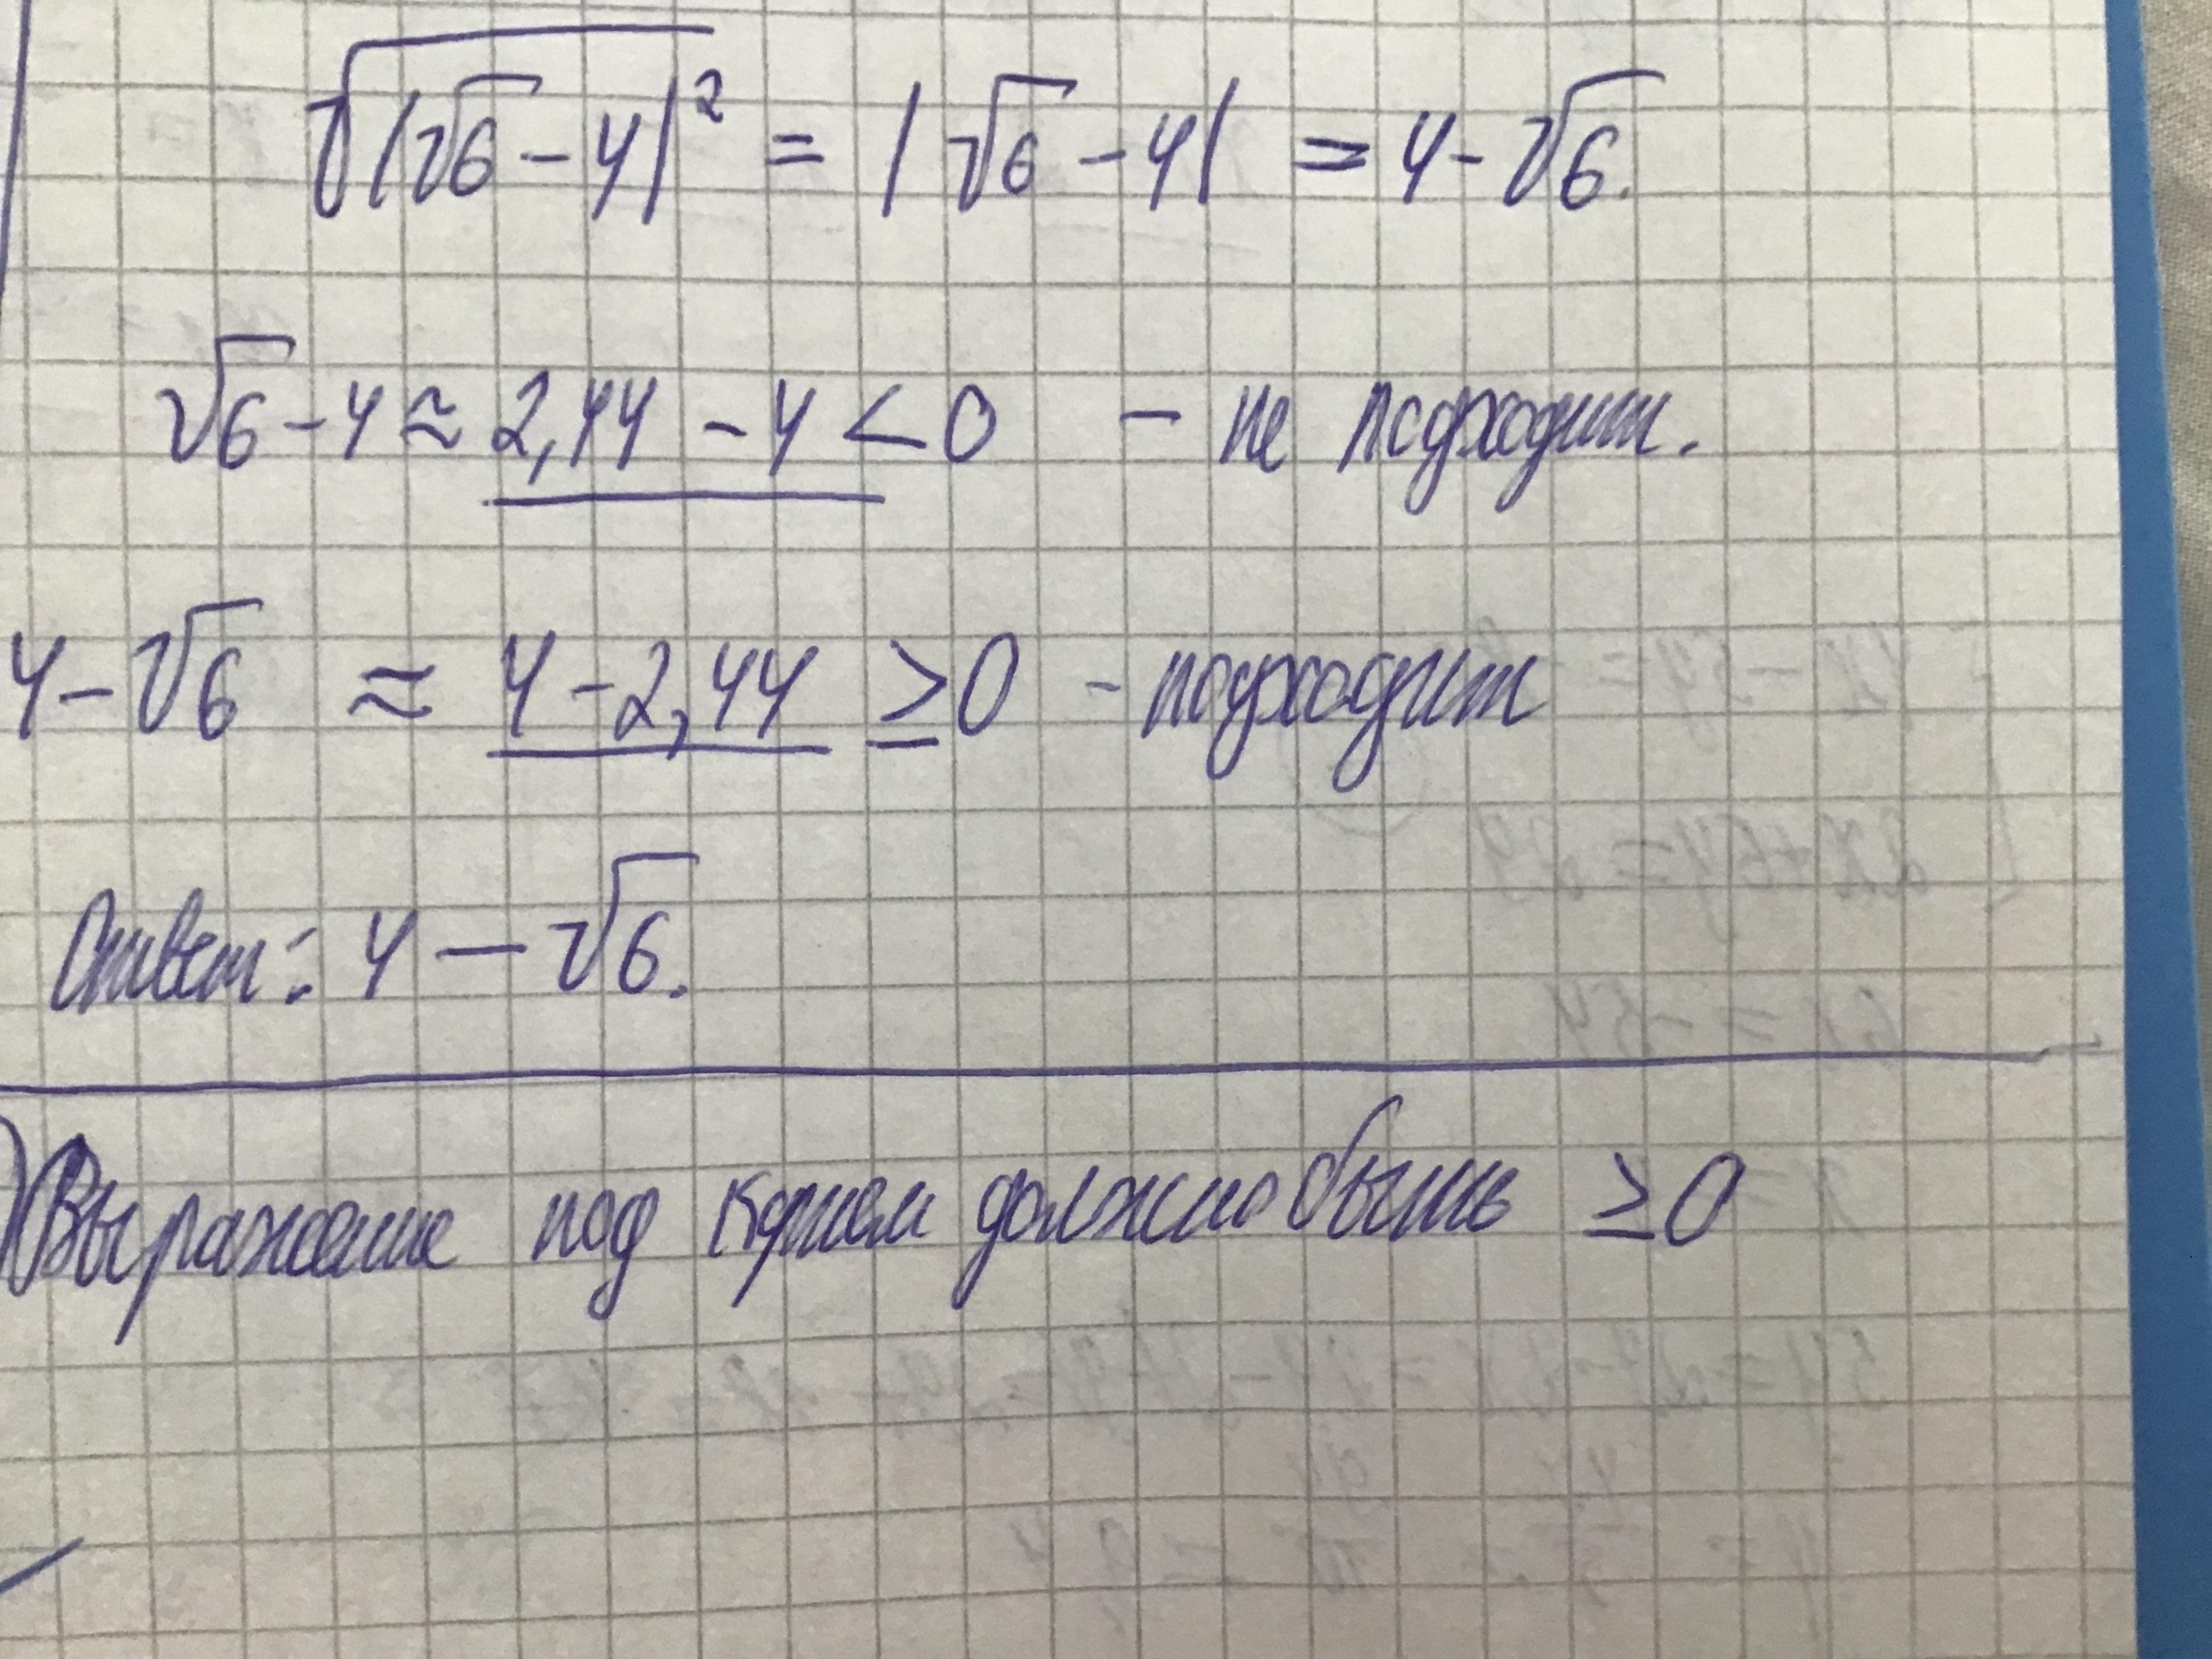 √|√6 - 4|² = |√6 - 4| = 4 - √6.
√6 - 4 ≈ 2,44 - 4 < 0 - не подходит.
4 - √6 ≈ 4 - 2,44 ≥ 0 - подходит
Ответ: 4 - √6.
Выражение под корнем должно быть ≥ 0